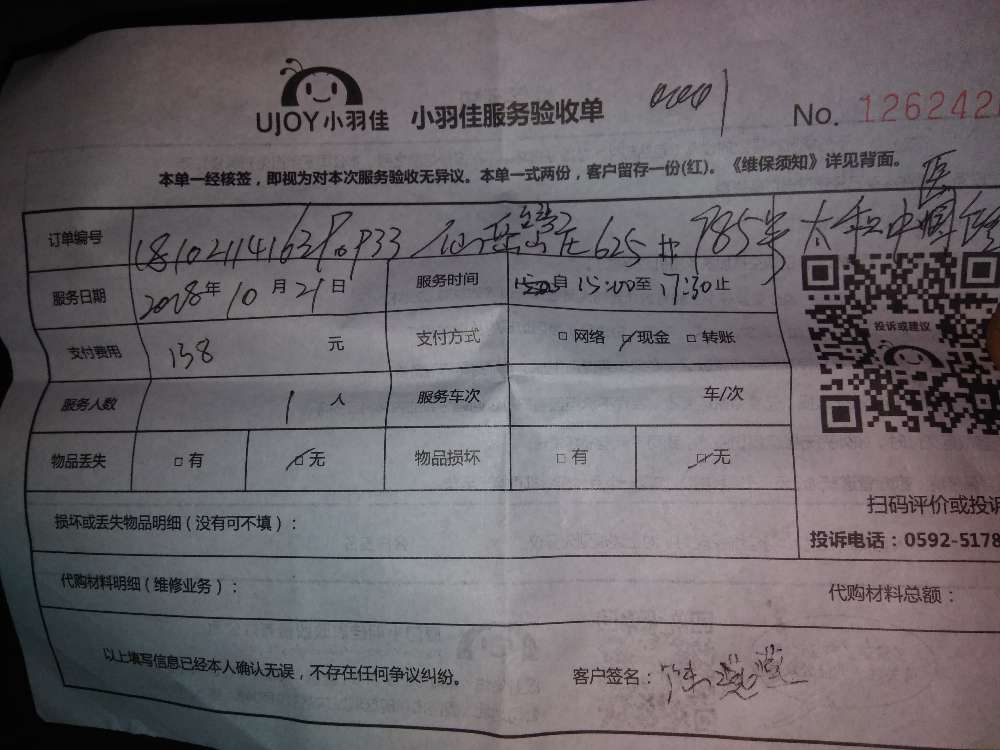 UJOY小羽佳 小羽佳服务验收单 No. 126242
本单一经核签,即视为对本次服务验收无异议。本单一式两份,客户留存一份(红)。《维保须知》详见背面。
订单编号 625 785号 太和中
服务日期 2018年10月21日 服务时间 自15:00至17:30止
投诉或建议
支付费用 138元 支付方式 □网络 ☑现金 □转账
服务人数 1人 服务车次 车/次
物品丢失 □有 ☑无 物品损坏 □有 ☑无
扫码评价或投诉
损坏或丢失物品明细(没有可不填):
投诉电话:0592-5178
代购材料明细(维修业务): 代购材料总额:
以上填写信息已经本人确认无误,不存在任何争议纠纷。 客户签名: